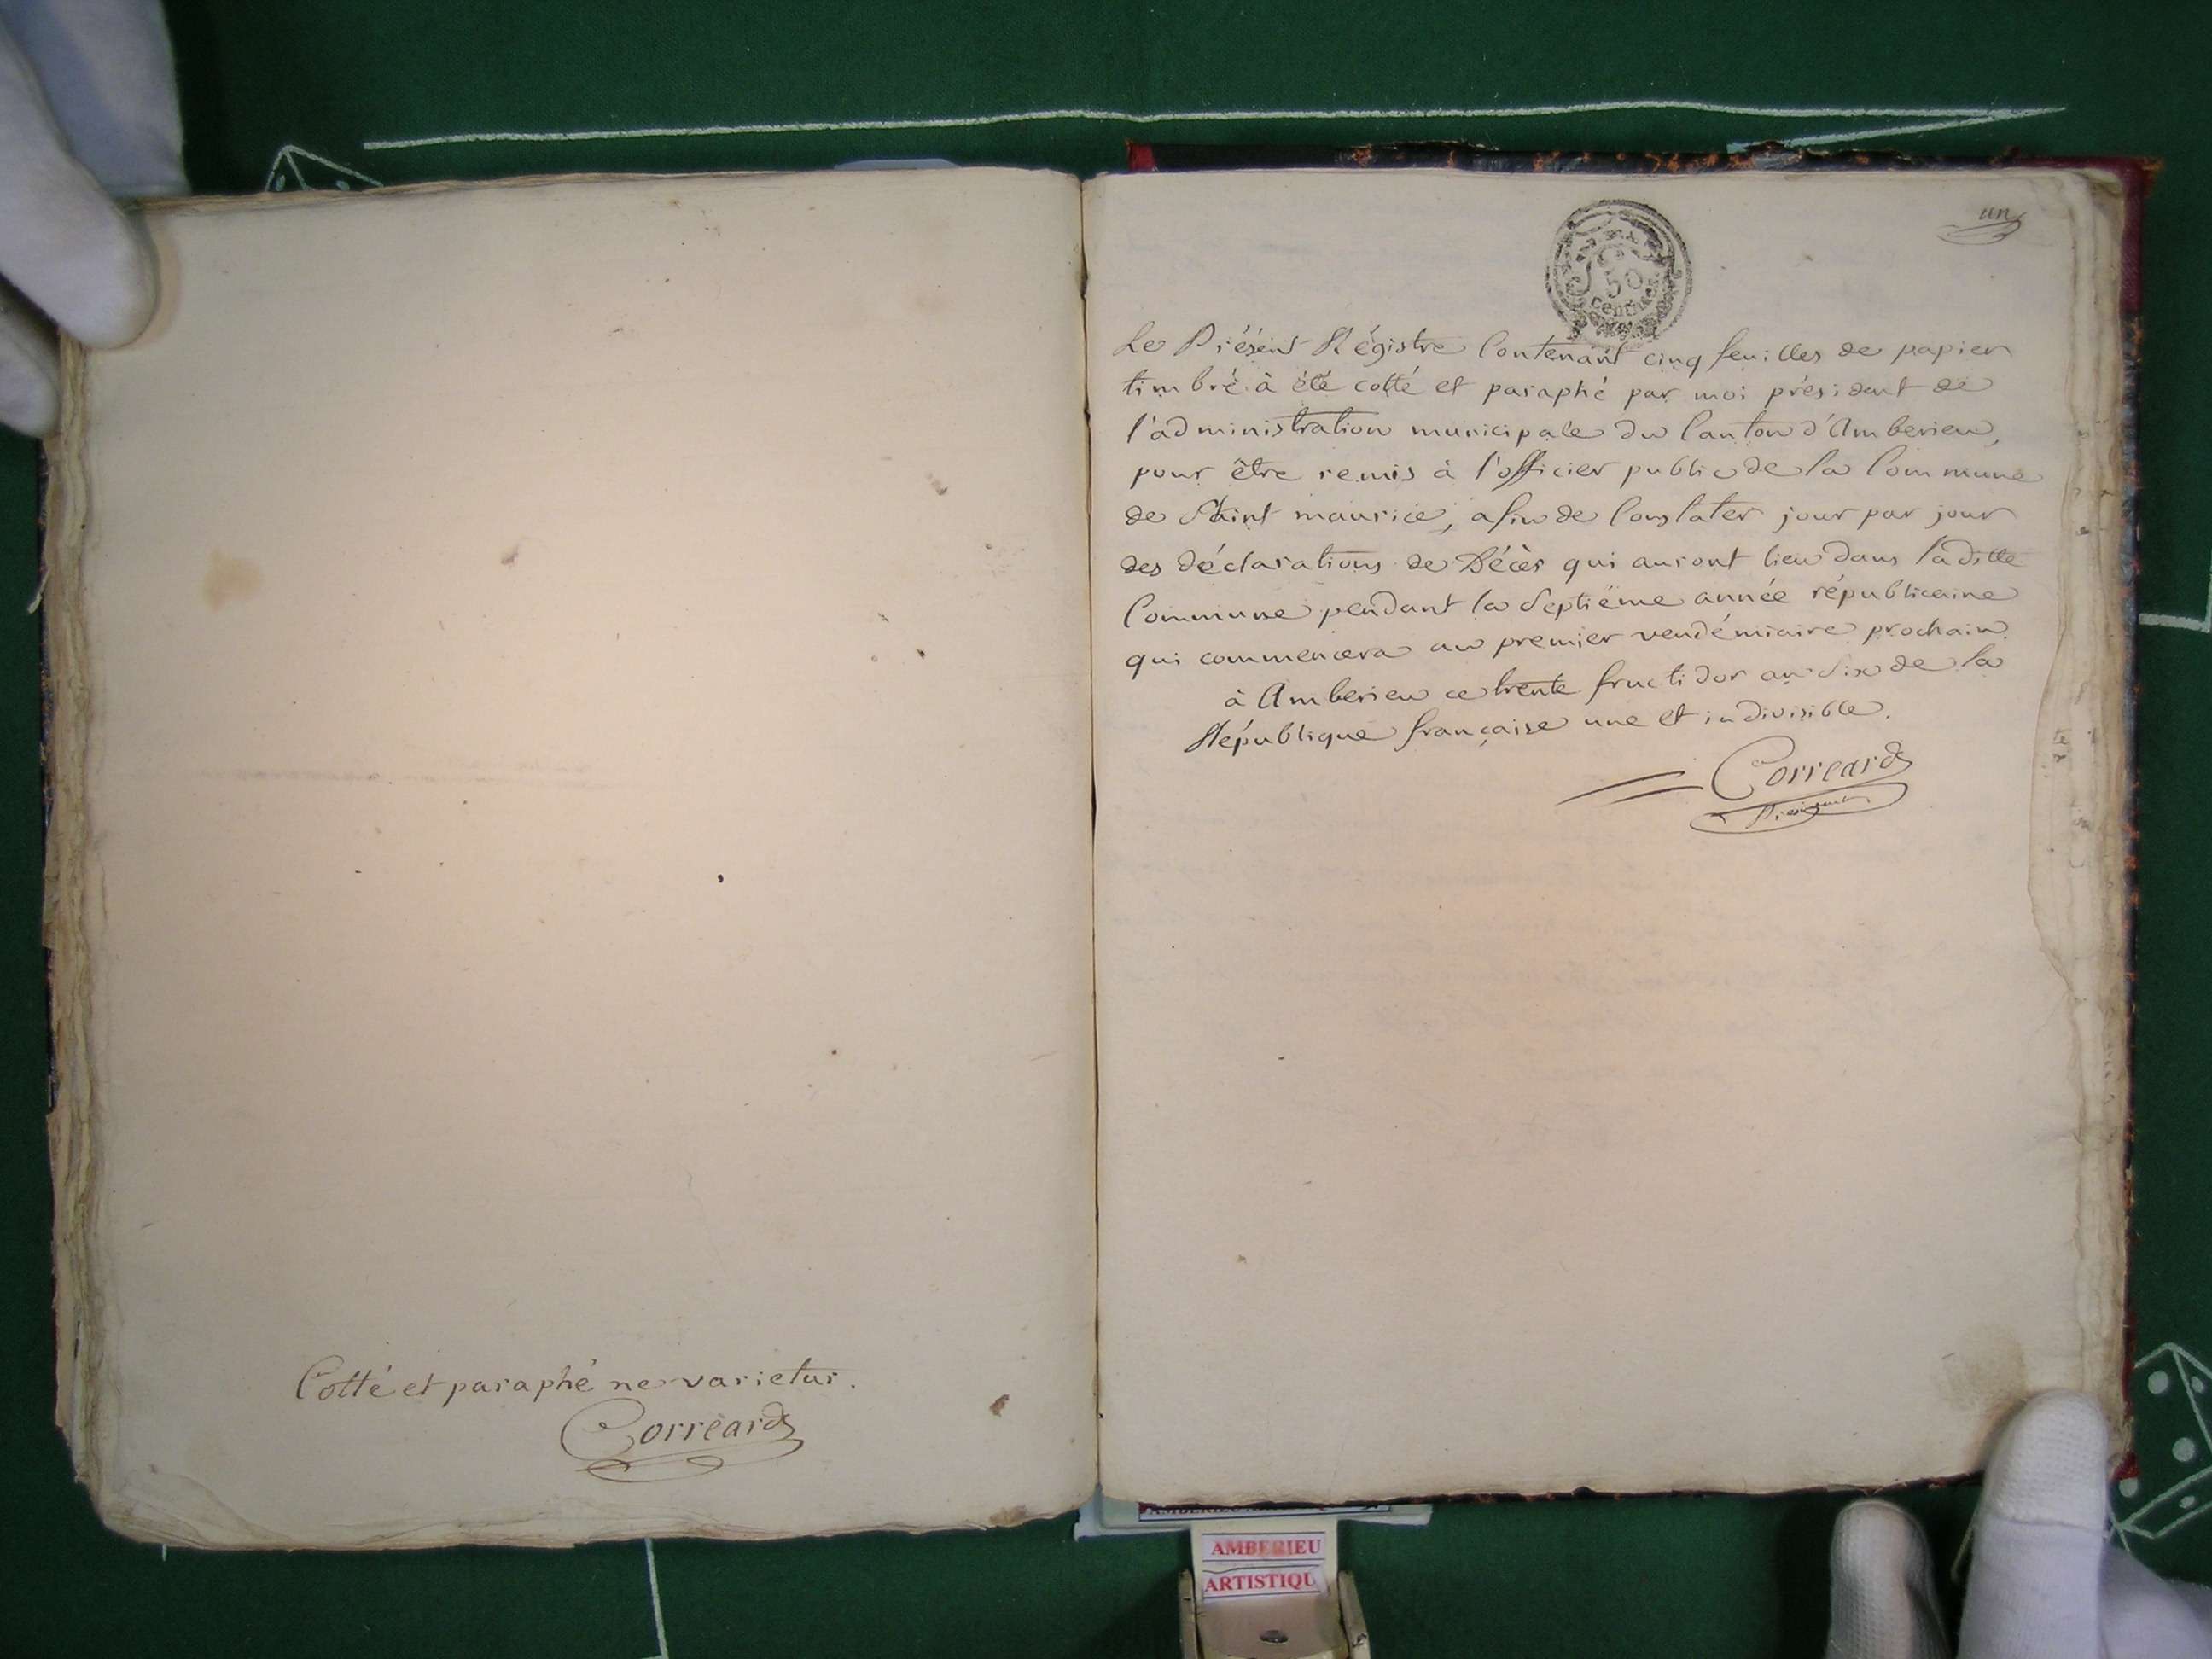 Cotté et paraphé ne varietur.
Corréard
un
50
Centimes
Le Présent Régistre Contenant cinq feuilles de papier
timbré à été cotté et paraphé par moi président de
l'administration municipale du Canton d'Amberieu,
pour être remis à l'officier public de la Commune
de Saint maurice, afin de Constater jour par jour
des déclarations de Décès qui auront lieu dans laditte
Commune pendant la Septiéme année républicaine
qui commencera au premier vendémiaire prochain.
à Amberieu ce trente fructidor an Six de la
République française une et indivisible.
Corréard
Président
AMBERIEU
ARTISTIQU